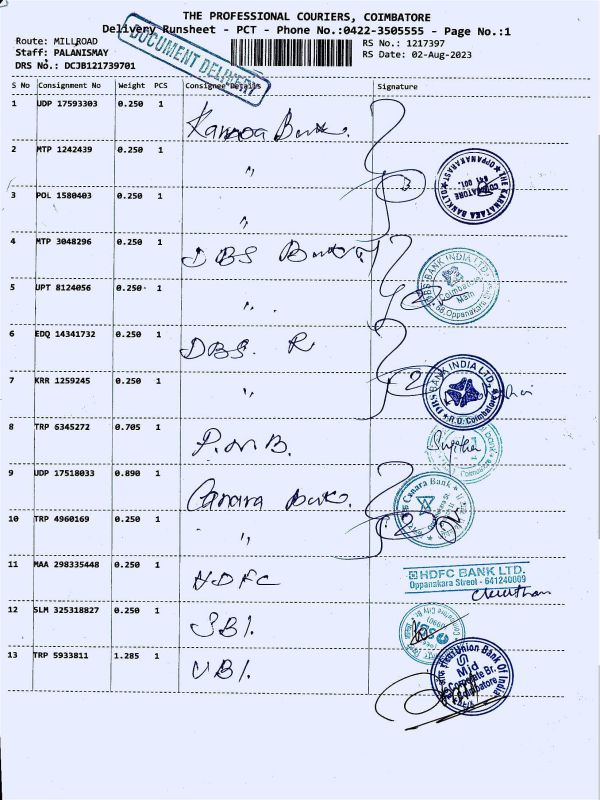 THE PROFESSIONAL COURIERS, COIMBATORE
Delivery Runsheet - PCT - Phone No.:0422-3505555 - Page No.:1
Route: MILLROAD
RS No.: 1217397
Staff: PALANISMAY
RS Date: 02-Aug-2023
DRS No.: DCJB121739701
DOCUMENT DELIVERY
S No Consignment No Weight PCS Consignee Details Signature
1 UDP 17593303 0.250 1
2 MTP 1242439 0.250 1 "
3 POL 1580403 0.250 1 "
3
THE KARNATAKA BANK LTD
OPPANAKARA ST
COIMBATORE
641 001.
4 MTP 3048296 0.250 1 DBS
5 UPT 8124056 0.250 1 "
2
DBS BANK INDIA LTD.
Coimbatore
Main
Oppanakara
6 EDQ 14341732 0.250 1 DBS. R
7 KRR 1259245 0.250 1 "
2
DBS BANK INDIA LTD.
R.D. Coimbatore
8 TRP 6345272 0.705 1 P.N.B.
Coimbatore
9 UDP 17518033 0.890 1 Canara Bank.
10 TRP 4960169 0.250 1 "
2
Canara Bank
11 MAA 298335448 0.250 1 HDFC
HDFC BANK LTD.
Oppanakara Street - 641240009
12 SLM 325318827 0.250 1 SBI.
13 TRP 5933811 1.285 1 UBI.
Union Bank Of India
Mid
Corporate Br.
Coimbatore